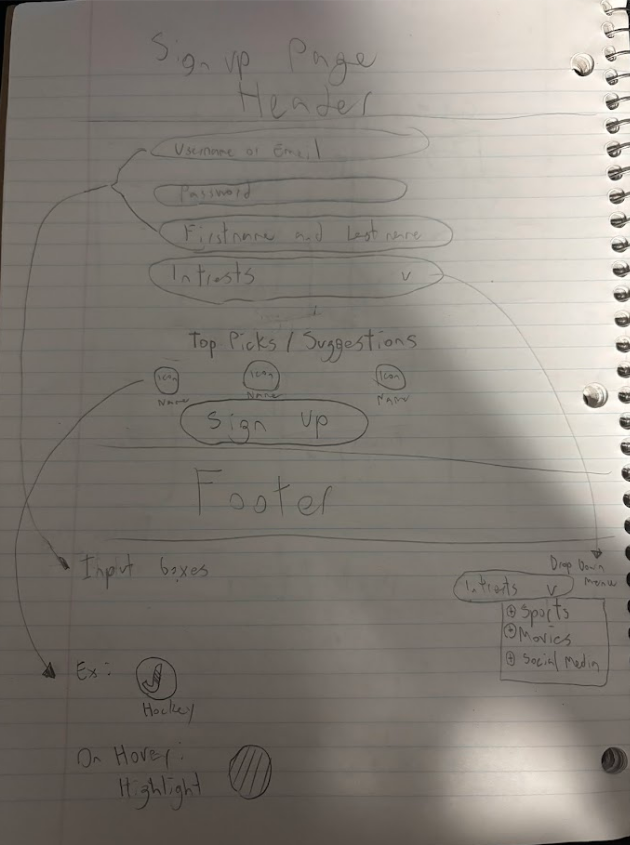 Sign up Page
Header
Username or Email
Password
Firstname and Lastname
Intrests v
Top Picks / Suggestions
Icon Icon Icon
Name Name Name
Sign Up
Footer
Input boxes
Drop Down
menu
Intrests v
Sports
Movies
Social Media
Ex:
Hockey
On Hover:
Highlight